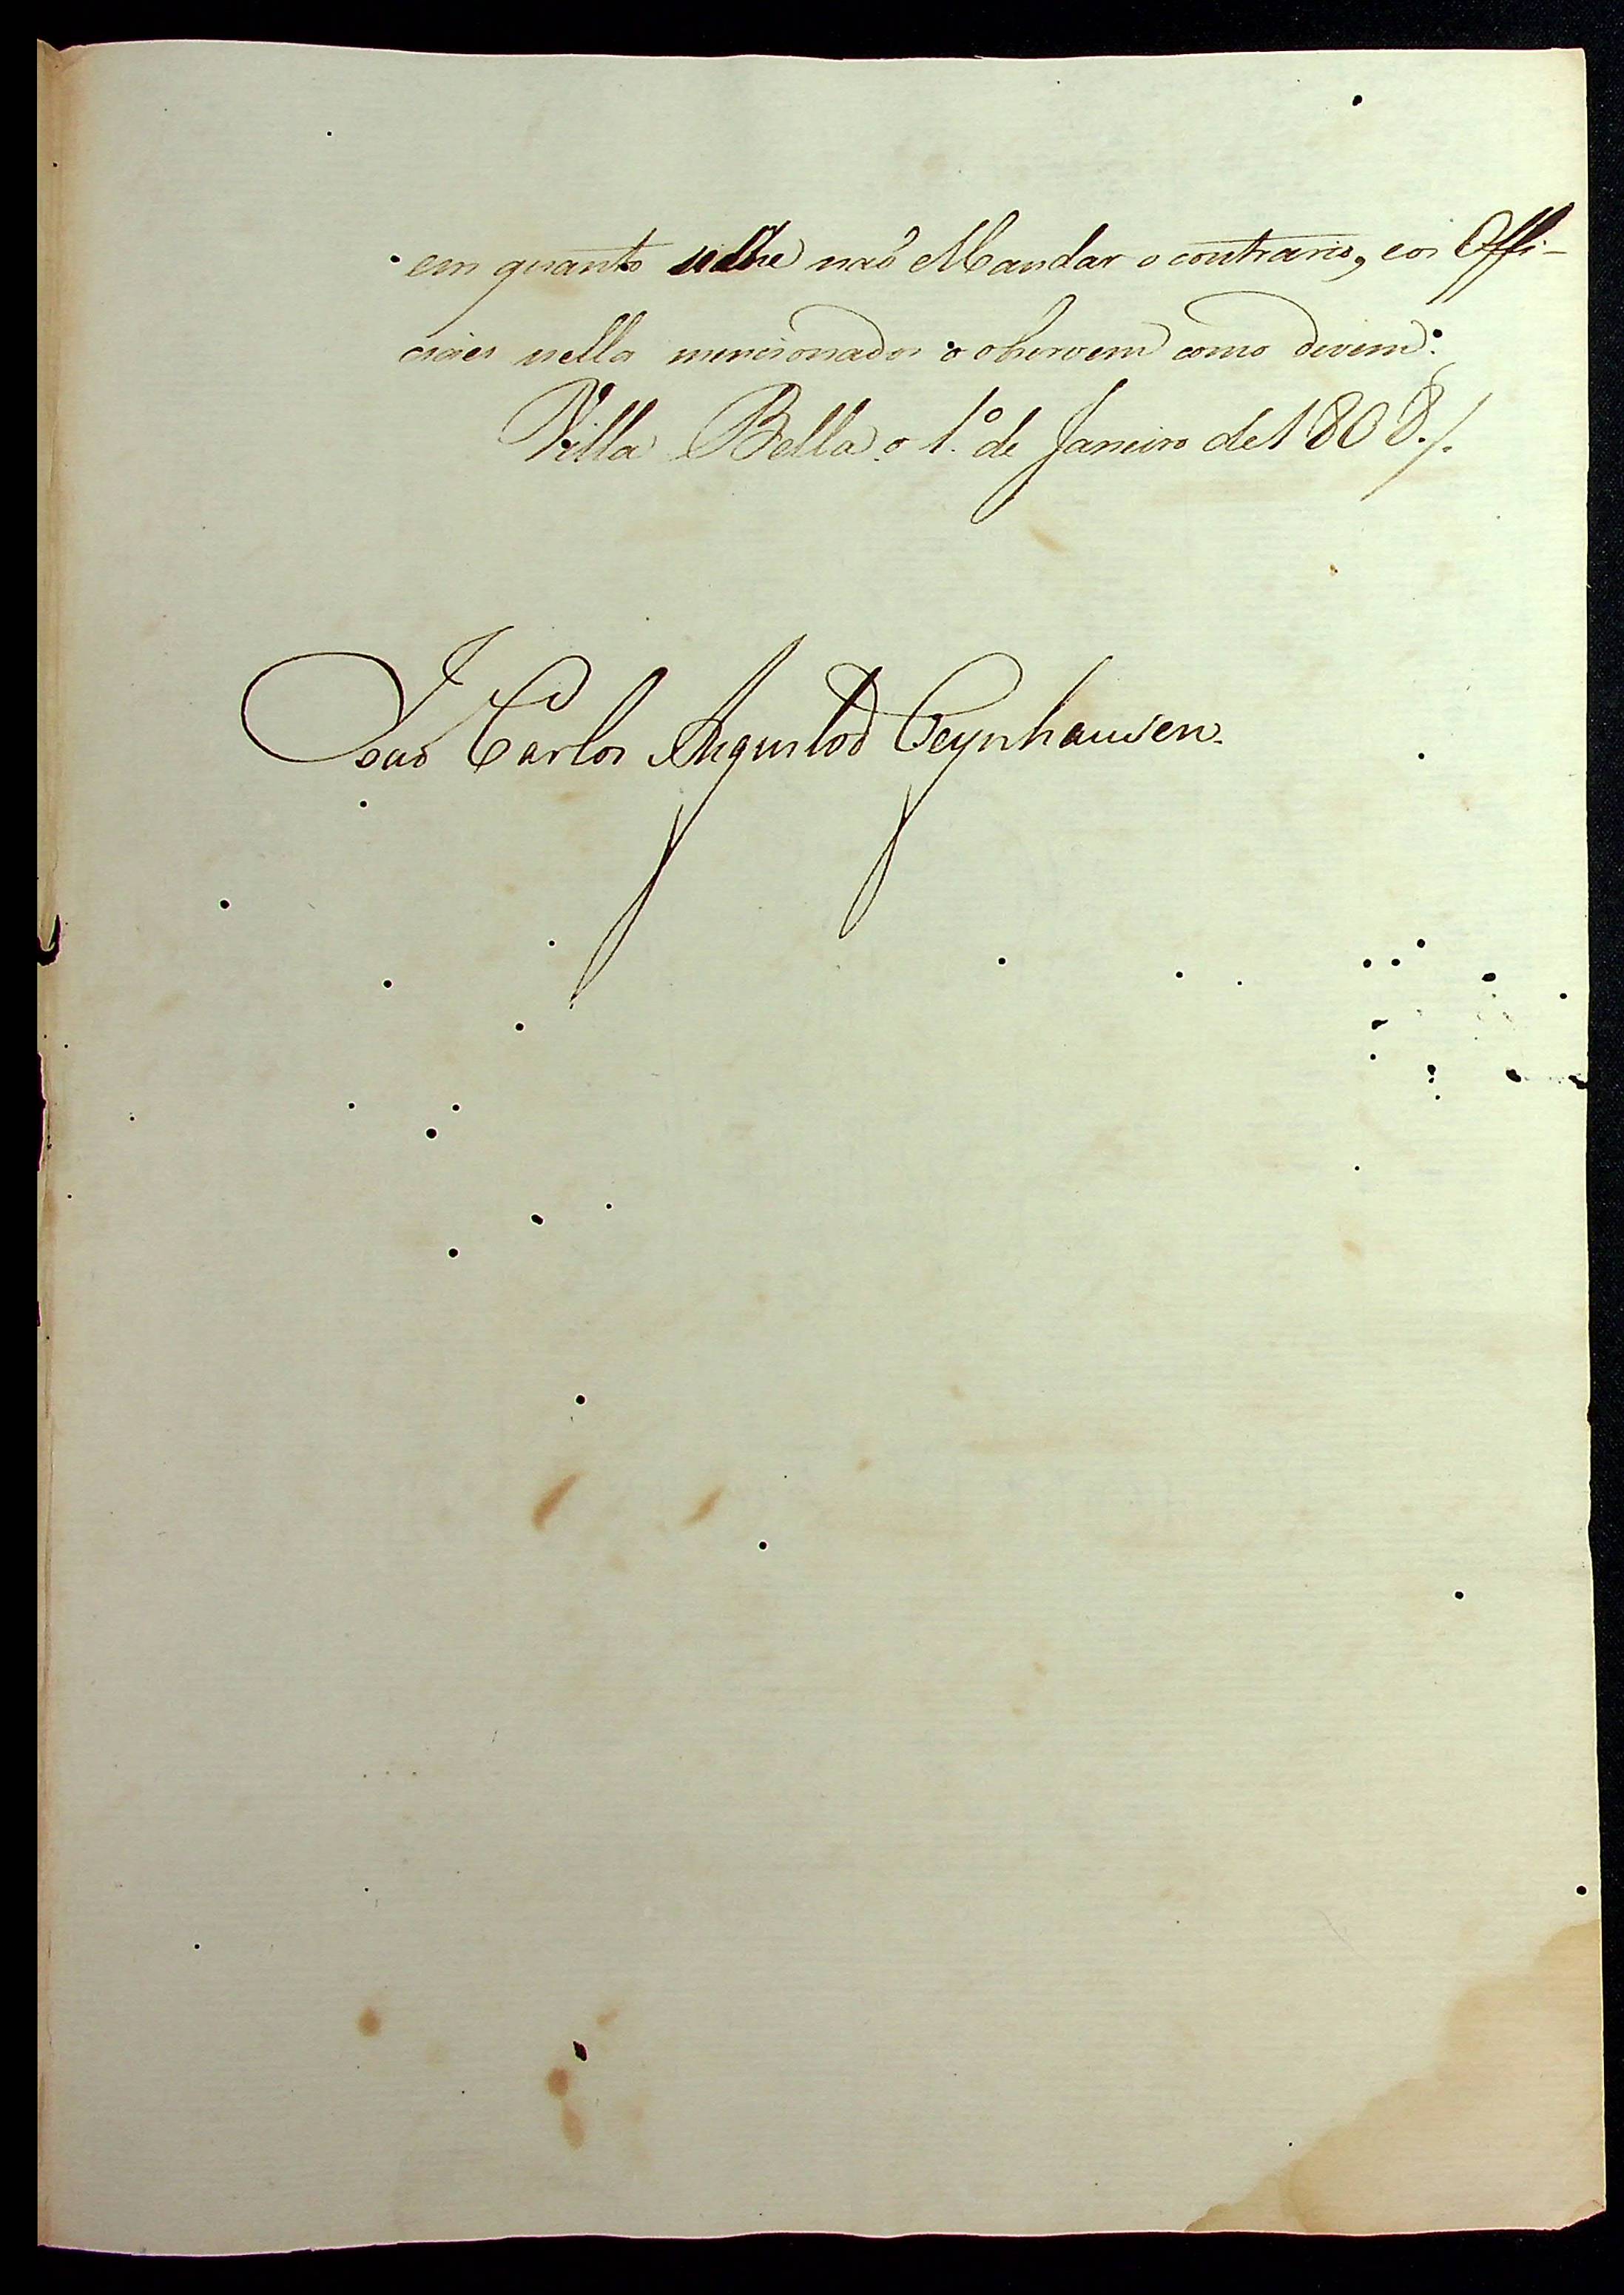 em quanto selhe naõ Mandar o contrario, eos Offi-
ciaes nella mencionados o observem como devem.
Villa Bella o 1.º de Janeiro de 1808./.
Joaõ Carlos Augusto d'Oeynhausen.